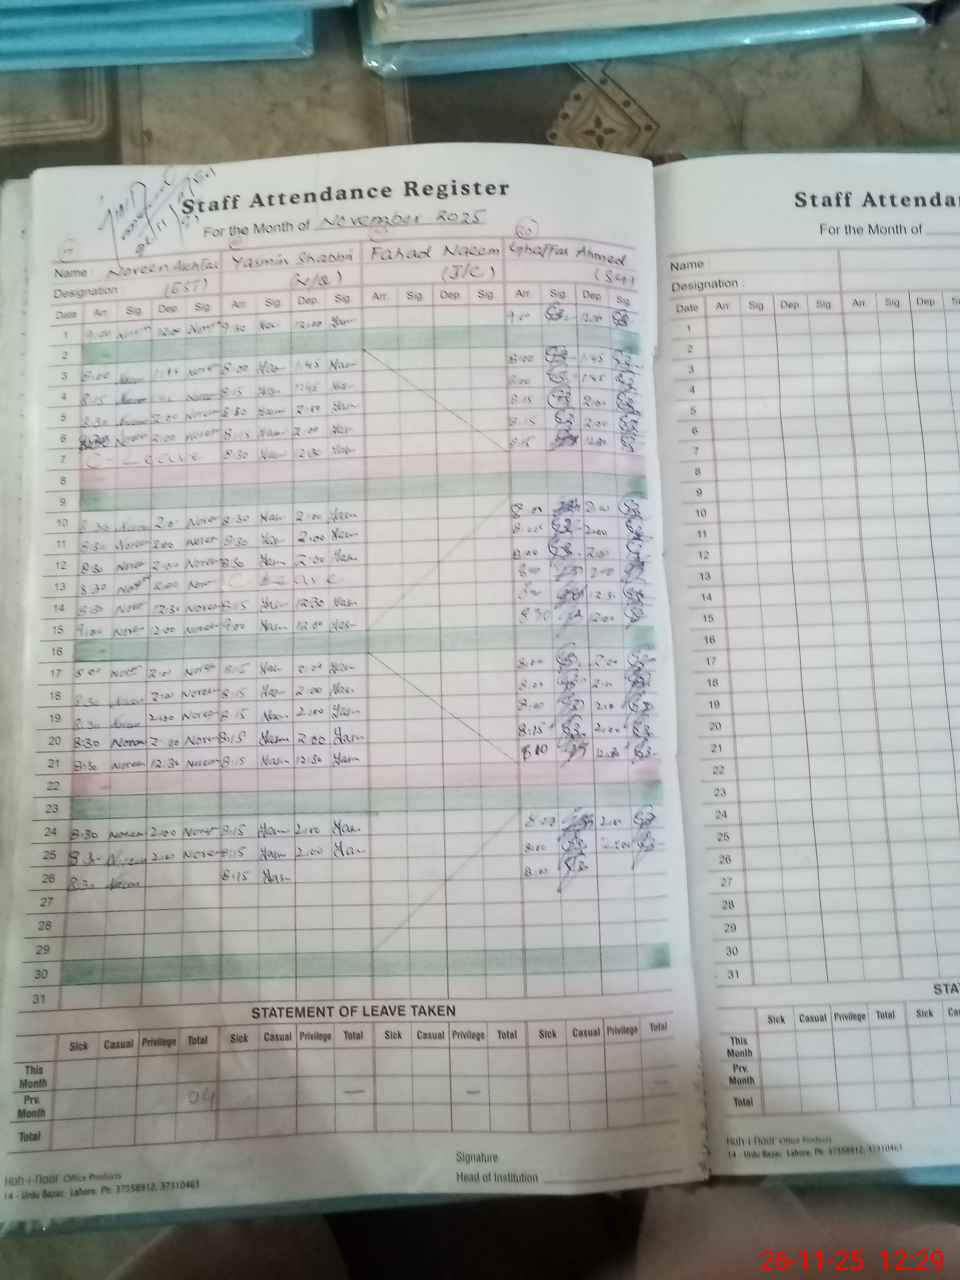 Staff Attendance Register
For the Month of November 2025
Name : Noreen Akhtar Yasmin Shabbir Fahad Naeem Ghaffar Ahmed
Designation : (EST) (N/Q) (J/C)
Date Arr. Sig. Dep. Sig. Arr. Sig. Dep. Sig. Arr. Sig. Dep. Sig. Arr. Sig. Dep. Sig.
1 9:00 12:00 9:30 Yas 12:00 Yas 9:00 12:00
2
3 8:00 8:00 Yas 1:45 Yas 8:00 1:45
4 8:15 8:15 Yas 1:45 Yas 8:00 1:45
5 8:30 2:00 Noreen 8:30 Yas 2:00 Yas 8:15 2:00
6 8:30 Noreen 2:00 Noreen 8:15 Yas 2:00 Yas 8:15 2:00
7 C-Leave 8:30 Yas 12:30 Yas 8:15
8
9
10 8:30 Noreen 2:00 Noreen 8:30 Yas 2:00 Yas 8:00 2:00
11 8:30 Noreen 2:00 Noreen 8:30 Yas 2:00 Yas 8:00 2:00
12 8:30 Noreen 2:00 Noreen 8:30 Yas 2:00 Yas 8:00 2:00
13 8:30 Noreen 2:00 Nor C-Leave 8:00 2:00
14 8:30 Noreen 12:30 Noreen 8:15 Yas 12:30 Yas 12:30
15 9:00 Noreen 12:00 Noreen 9:00 Yas 12:00 Yas 8:30 12:00
16
17 8:00 Noreen 2:00 Noreen 8:15 Yas 2:00 Yas 8:00 2:00
18 8:30 Noreen 2:00 Noreen 8:15 Yas 2:00 Yas 8:00 2:00
19 8:30 Noreen 2:00 Noreen 8:15 Yas 2:00 Yas 8:00 2:00
20 8:30 Noreen 2:00 Noreen 8:15 Yas 2:00 Yas 8:15 2:00
21 8:30 Noreen 12:30 Noreen 8:15 Yas 12:30 Yas 8:00 12:30
22
23
24 8:30 Noreen 2:00 Noreen 8:15 Yas 2:00 Yas 8:00 2:00
25 8:30 Noreen 2:00 Noreen 8:15 Yas 2:00 Yas 8:00 2:00
26 8:30 Noreen 8:15 Yas 8:00
27
28
29
30
31
STATEMENT OF LEAVE TAKEN
Sick Casual Privilege Total Sick Casual Privilege Total Sick Casual Privilege Total Sick Casual Privilege Total
This Month
Prv. Month 04 — — —
Total
Signature
Head of Institution
Huh-i-Noor Office Products
14 - Urdu Bazar, Lahore. Ph: 37358912, 37310461
Staff Attenda
For the Month of
Name
Designation :
Date Arr. Sig. Dep. Sig. Arr. Sig Dep Sig
1
2
3
4
5
6
7
8
9
10
11
12
13
14
15
16
17
18
19
20
21
22
23
24
25
26
27
28
29
30
31
STA
Sick Casual Privilege Total Sick
This Month
Prv. Month
Total
Huh-i-Noor Office Products
14 - Urdu Bazar, Lahore. Ph: 37358912, 37310461
26-11-25 12:29